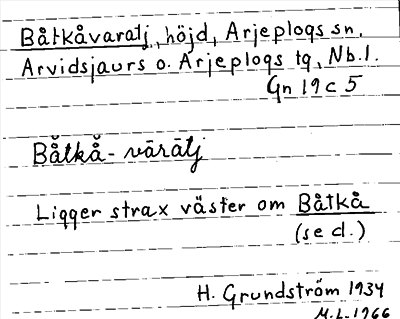 Båtkåvaratj, höjd, Arjeplogs sn,
Arvidsjaurs o. Arjeplogs tg, Nb.l.
Gn 19 c 5
Båtkå-vārātj
Ligger strax väster om Båtkå
(se d.)
H. Grundström 1934
M.L. 1966